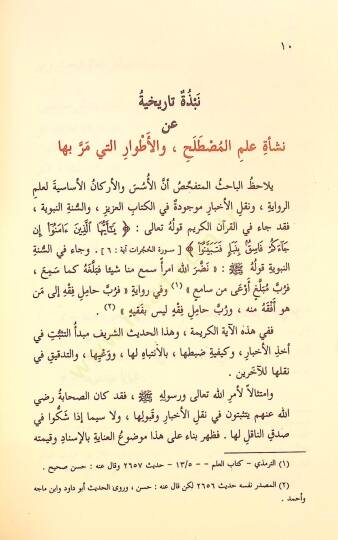 ١٠
نَبْذَةٌ تاريخيةٌ
عن
نشأةِ علمِ المُصْطَلَحِ ، والأَطْوارِ التي مَرَّ بها
يلاحظُ الباحثُ المتفحِّصُ أنَّ الأُسُسَ والأركانَ الأساسيةَ لعلمِ
الروايةِ ، ونقلِ الأخبارِ موجودةٌ في الكتابِ العزيزِ ، والسُّنةِ النبوية ،
فقد جاء في القرآن الكريم قولُهُ تعالى : ﴿ يَٰٓأَيُّهَا ٱلَّذِينَ ءَامَنُوٓا۟ إِن
جَآءَكُمْ فَاسِقٌۢ بِنَبَإٍ فَتَبَيَّنُوٓا۟ ﴾ [ سورة الحُجُرات آية : ٦ ] . وجاء في السُّنةِ
النبويةِ قولُهُ ﷺ : « نَضَّرَ اللهُ امرأً سمع منا شيئا فبَلَّغَهُ كما سَمِعَ ،
فرُبَّ مُبَلَّغٍ أَوْعَى من سامع » (١) وفي روايةٍ « فرُبَّ حاملِ فِقْهٍ إلى مَن هو
أَفْقَهُ منه ، ورُبَّ حاملِ فِقْهٍ ليس بفَقيهٍ » (٢) .
ففي هذه الآيةِ الكريمة ، وهذا الحديثِ الشريفِ مبدأُ التثبُّتِ في
أخذِ الأخبارِ ، وكيفيةِ ضبطها ، بالانتباهِ لها ، ووَعْيِها ، والتدقيقِ في
نقلها للآخَرين .
وامتثالًا لأمرِ اللهِ تعالى ورسولِهِ ﷺ ، فقد كان الصحابةُ رضي
الله عنهم يتثبتون في نقلِ الأخبارِ وقبولِها ، ولا سيما إذا شكُّوا في
صدقِ الناقلِ لها . فظهر بناء على هذا موضوعُ العنايةِ بالإسنادِ وقيمته
(١) الترمذي – كتاب العلم – – ١٣/٥ – حديث ٢٦٥٧ وقال عنه : حسن صحيح .
(٢) المصدر نفسه حديث ٢٦٥٦ لكن قال عنه : حسن ، وروى الحديث أبو داود وابن ماجه
وأحمد .